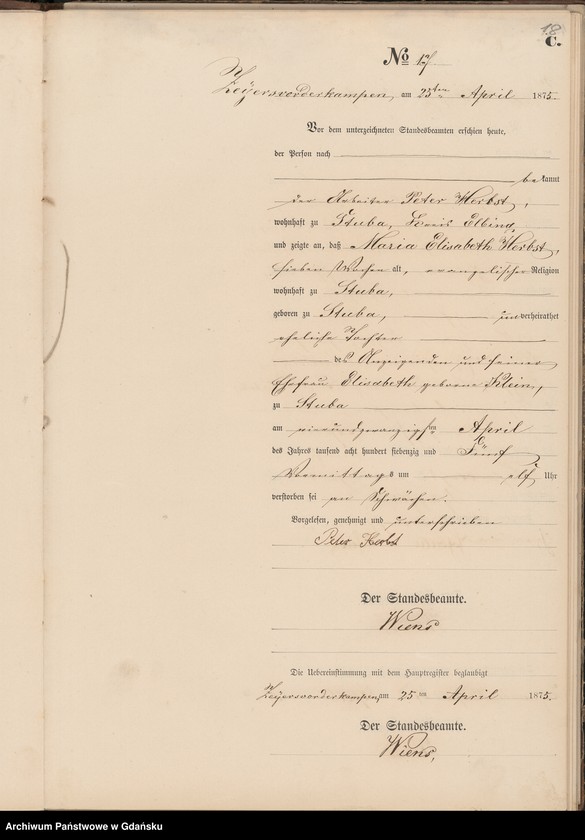 18
C.
No 17
Zeyersvorderkampen, am 25ten April 1875.
Vor dem unterzeichneten Standesbeamten erschien heute,
der Person nach
bekannt
der Arbeiter Peter Herbst,
wohnhaft zu Stuba, Kreis Elbing,
und zeigte an, daß Maria Elisabeth Herbst,
sieben Wochen alt, evangelischer Religion
wohnhaft zu Stuba,
geboren zu Stuba, unverheirathet
eheliche Tochter
des Anzeigenden und seiner
Ehefrau Elisabeth geborene Klein,
zu Stuba
am vierundzwanzigsten April
des Jahres tausend acht hundert siebenzig und Fünf
Vormittags um elf Uhr
verstorben sei an Schwächen.
Vorgelesen, genehmigt und unterschrieben
Peter Herbst
Der Standesbeamte.
Wiens
Die Uebereinstimmung mit dem Hauptregister beglaubigt
Zeyersvorderkampen, am 25ten April 1875.
Der Standesbeamte.
Wiens,
Archiwum Państwowe w Gdańsku